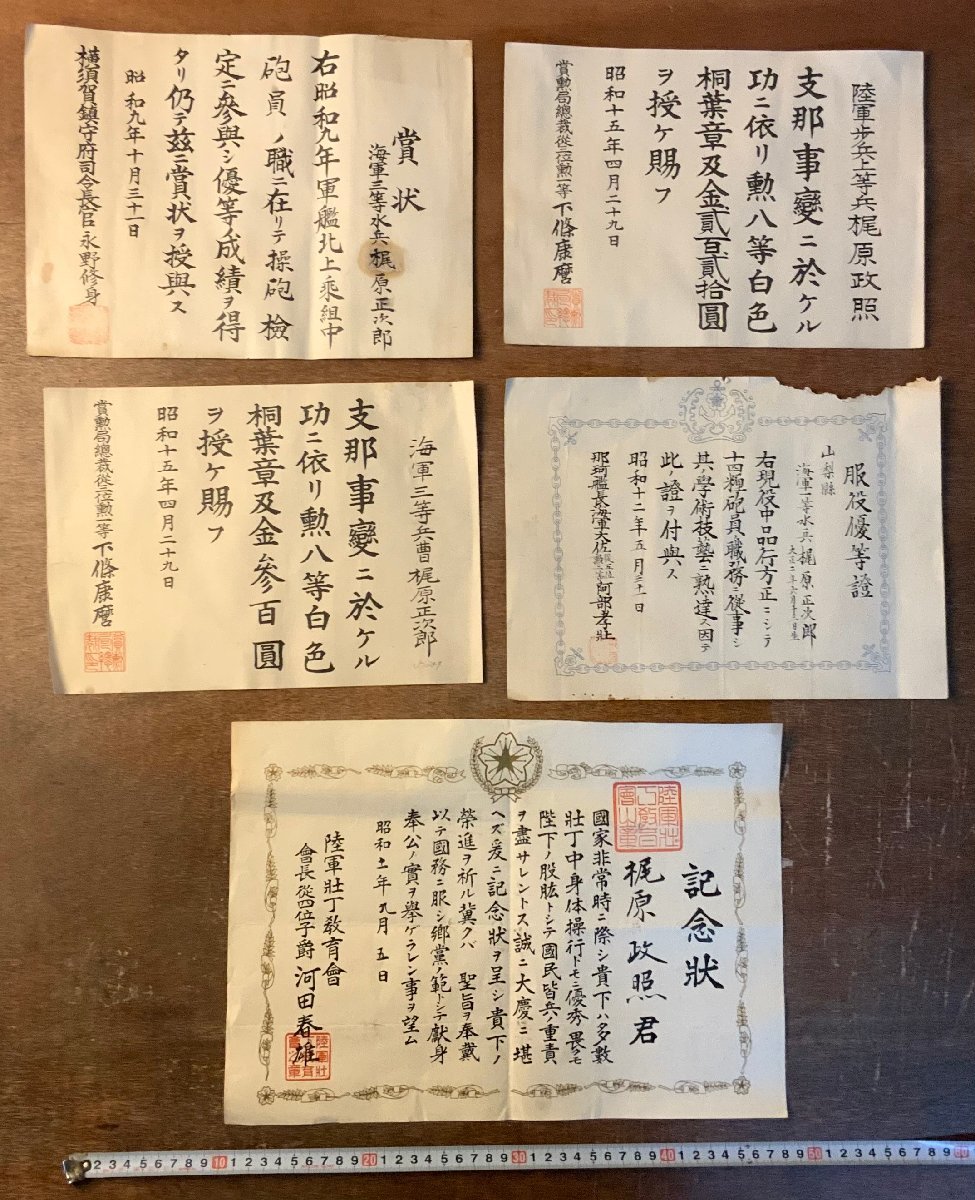 賞状
海軍三等水兵 梶原正次郎
右昭和九年軍艦北上乗組中
砲員ノ職ニ在リテ操砲檢
定ニ參與シ優等ノ成績ヲ得
タリ仍テ茲ニ賞状ヲ授與ス
昭和九年十月三十一日
横須賀鎮守府司令長官 永野修身
陸軍歩兵上等兵 梶原政照
支那事變ニ於ケル
功ニ依リ勲八等白色
桐葉章及金貳百貳拾圓
ヲ授ケ賜フ
昭和十五年四月二十九日
賞勲局總裁從三位勲一等 下條康麿
海軍三等兵曹 梶原正次郎
支那事變ニ於ケル
功ニ依リ勲八等白色
桐葉章及金參百圓
ヲ授ケ賜フ
昭和十五年四月二十九日
賞勲局總裁從三位勲一等 下條康麿
服役優等證
山梨縣
海軍一等水兵 梶原正次郎
右現役中品行方正ニシテ
十四糎砲員ノ職務ニ從事シ
其ノ學術技藝ニ熟達ス因テ
此ノ證ヲ付與ス
昭和十二年五月三十一日
那珂艦長海軍大佐 阿部孝壯
記念狀
梶原政照君
國家非常時ニ際シ貴下ハ多數
壯丁中身体操行トモニ優秀畏クモ
陛下ノ股肱トシテ國民皆兵ノ重責
ヲ盡サレントス誠ニ大慶ニ堪
ヘズ爰ニ記念狀ヲ呈シ貴下ノ
榮進ヲ祈ル冀クバ 聖旨ヲ奉戴
以テ國務ニ服シ鄉黨ノ範トシテ獻身
奉公ノ實ヲ擧ゲラレン事ヲ望ム
昭和十一年九月五日
陸軍壯丁敎育會
會長從四位子爵 河田春雄
2 3 4 5 6 7 8 9 10 1 2 3 4 5 6 7 8 9 20 1 2 3 4 5 6 7 8 9 30 1 2 3 4 5 6 7 8 9 40 1 2 3 4 5 6 7 8 9 50 1 2 3 4 5 6 7 8 9 60